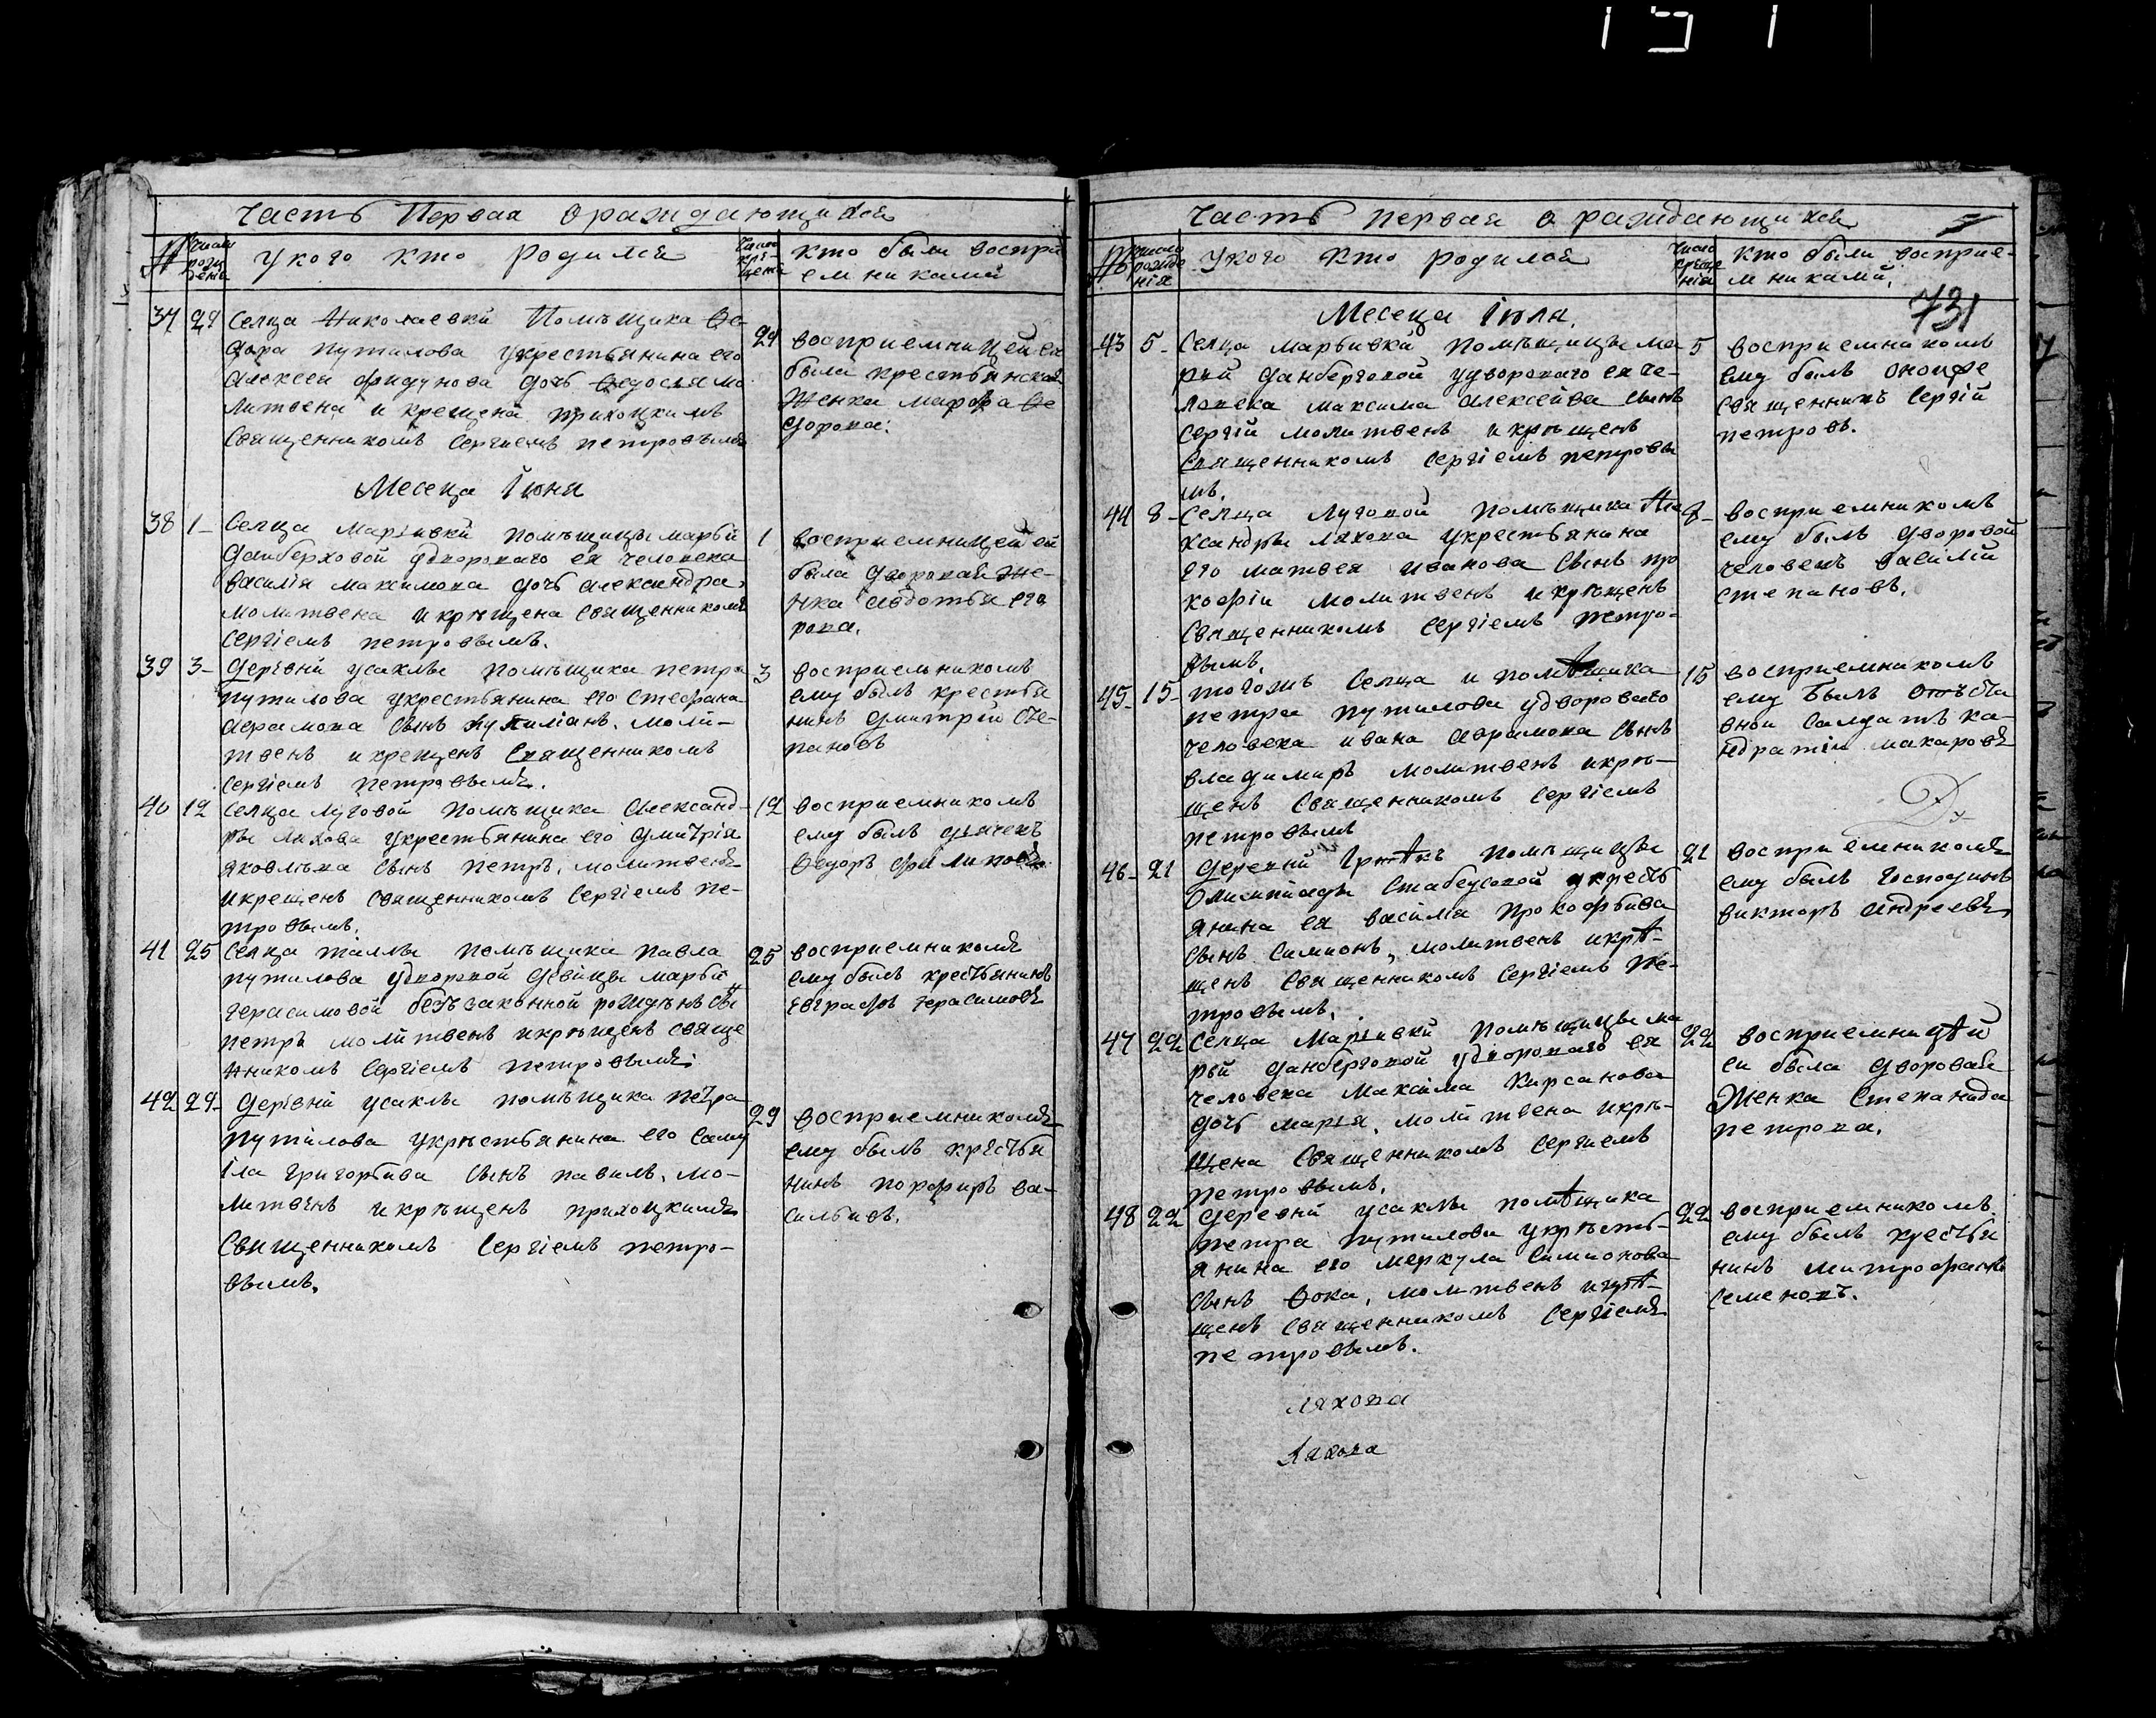 Часть Первая о раждающихся
№ Число рожденія
У кого кто родился
Число крещенія
кто были воспри
емниками
37 29 Селца Николаевки Помѣщика Ѳе-
дора Путилова у крестьянина его
Алексея дочь Ѳедосья мо
литвена и крещена приходкимъ
Священникомъ Сергиемъ Петровымъ
29 восприемницей ея
была крестьянская
Женка Марфа Ѳе
дорова.
Месеца Іюня
38 1 Селца Марьивки помѣщицы марьи
Данберховой у двороваго ея человека
василія максимова дочь Александра,
молитвена и крѣщена священникомъ
Сергіемъ петровымъ.
1 восприемницей ей
была дворовая же-
нка Авдотья его
рова.
39 3 Деревни усаклы помѣщика петра
путилова у крестьянина его Стефана
Аврамова Сынъ моли-
твенъ и крещенъ Священникомъ
Сергіемъ Петровымъ.
3 восприемникомъ
ему былъ крестья
нинъ Дмитрий Сте-
пановъ
40 12 Селца луговой помѣщика Александ-
ры Ляхова у крестьянина его Дмитрія
яковлѣва Сынъ Петръ, молитвенъ
и крещенъ священникомъ Сергіемъ пе-
тровымъ.
12 восприемникомъ
ему былъ дьячекъ
Ѳедоръ филиповъ.
41 25 Селца таллы помѣщика павла
путилова у дворовой девицы марьи
герасимовой безъзаконной рожденъ сы
петръ молитвенъ и крѣщенъ свяще
нникомъ Сергіемъ Петровымъ.
25 восприемникомъ
ему былъ крестьянинъ
Евграфъ герасимовъ
42 29 Деревни усаклы помѣщика петра
путилова у крѣстьянина его Саму
іла Григорьива Сынъ павилъ, мо-
литвенъ и крѣщенъ приходкимъ
Священникомъ Сергіемъ петро-
вымъ.
29 восприемникомъ
ему былъ крестья
нинъ порфиръ ва-
сильивъ.
Часть первая о раждающихся
№ число рожденія
У кого кто родился
Число крещенія
кто были восприе-
мниками.
731
Месеца Іюля.
43 5 Селца марьивки помѣщицы ма
рьи Данберговой у двороваго ея че-
ловека максима алексеива сынъ
Сергій молитвенъ и крѣщенъ
Священникомъ Сергіемъ петровы
мъ.
5 восприемникомъ
ему былъ оной же
священникъ Сергій
петровъ.
44 8 Селца Луговой помѣщика Але
ксандры ляхова у крестьянина
его матвея иванова Сынъ про
кофіи молитвенъ и крѣщенъ
Священникомъ Сергіемъ петро-
вымъ.
8 восприемникомъ
ему былъ дворовой
человекъ василий
степановъ.
45 15 тогожъ Селца и помѣщика
петра путилова у двороваго
человека ивана аврамова Сынъ
владимиръ молитвенъ и крѣ-
щенъ Священникомъ Сергіемъ
петровымъ
15 восприемникомъ
ему былъ отъста
вной салдатъ ка-
ндратіи макаровъ
46 21 Деревни помѣщицы
у кресть
янина ея василія Прокофьива
Сынъ Симионъ, молитвенъ и крѣ-
щенъ Священникомъ Сергіемъ Пе-
тровымъ.
21 восприемникомъ
ему былъ господинъ
викторъ андреевъ
47 22 Селца Марьивки помѣщицы ма
рьи Данберговой у двороваго ея
человека Максима Кирсанова
дочь марья, молитвена и крѣ-
щена Священникомъ Сергіемъ
петровымъ.
22 восприемницѣй
еи была дворовая
Женка Степанида
петрова.
48 22 Деревни усаклы помѣщика
петра путилова у крѣсть-
янина его меркула Симионова
Сынъ Ѳока, молитвенъ и крѣ-
щенъ Священникомъ Сергіемъ
петровымъ.
22 восприемникомъ
ему былъ крестья
нинъ митрофанъ
семеновъ.
ляхова
Ляхова